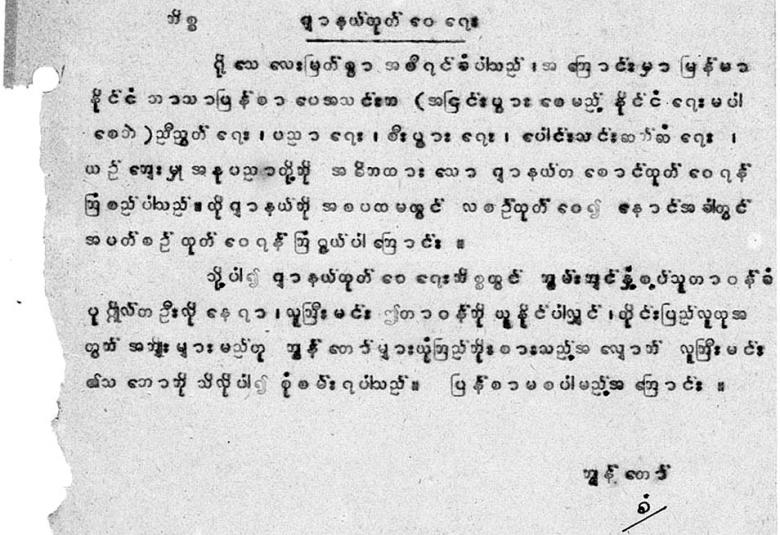 ကိစ္စ ဂျာနယ်ထုတ် ဝေ ရေး
ရို သေ လေးမြတ်စွာ အစီရင်ခံပါသည် ၊ အ ကြောင်းမှာ မြန်မာ
နိုင်ငံ ဘာသာပြန်စာ ပေအသင်းက (အငြင်းပွား စေမည့် နိုင်ငံ ရေးမပါ
စေဘဲ )ညီညွတ် ရေး ၊ ပညာ ရေး ၊ စီးပွား ရေး ၊ ပေါင်းသင်းဆက်ဆံ ရေး ၊
ယဉ် ကျေးမှု အနုပညာတို့ကို အဓိကထား သော ဂျာနယ်တ စောင်ထုတ် ဝေရန်
ကြံစည်ပါသည်။ ထို ဂျာနယ်ကို အစပထမတွင် လစဉ်ထုတ် ဝေ၍ နောင်အခါတွင်
အပတ်စဉ် ထုတ် ဝေရန် ကြံ ရွယ်ပါ ကြောင်း ။
သို့ပါ၍ ဂျာနယ်ထုတ် ဝေ ရေးကိစ္စတွင် ကျွမ်းကျင်နှံ့စပ်သူတာဝန်ခံ
ပုဂ္ဂိုလ်တဦးလို နေရာ ၊ လူကြီးမင်း ဤတာဝန်ကို ယူနိုင်ပါလျှင် ၊ တိုင်းပြည်လူထုအ
တွက် အကျိုးများမည်ဟု ကျွန် တော်များယုံကြည်ကိုးစားသည့်အ လျောက် လူကြီးမင်း
၏သ ဘောကို သိလိုပါ၍ စုံစမ်းရပါသည်။ ပြန်စာမစပါမည့်အ ကြောင်း ။
ကျွန် တော်
ခံ